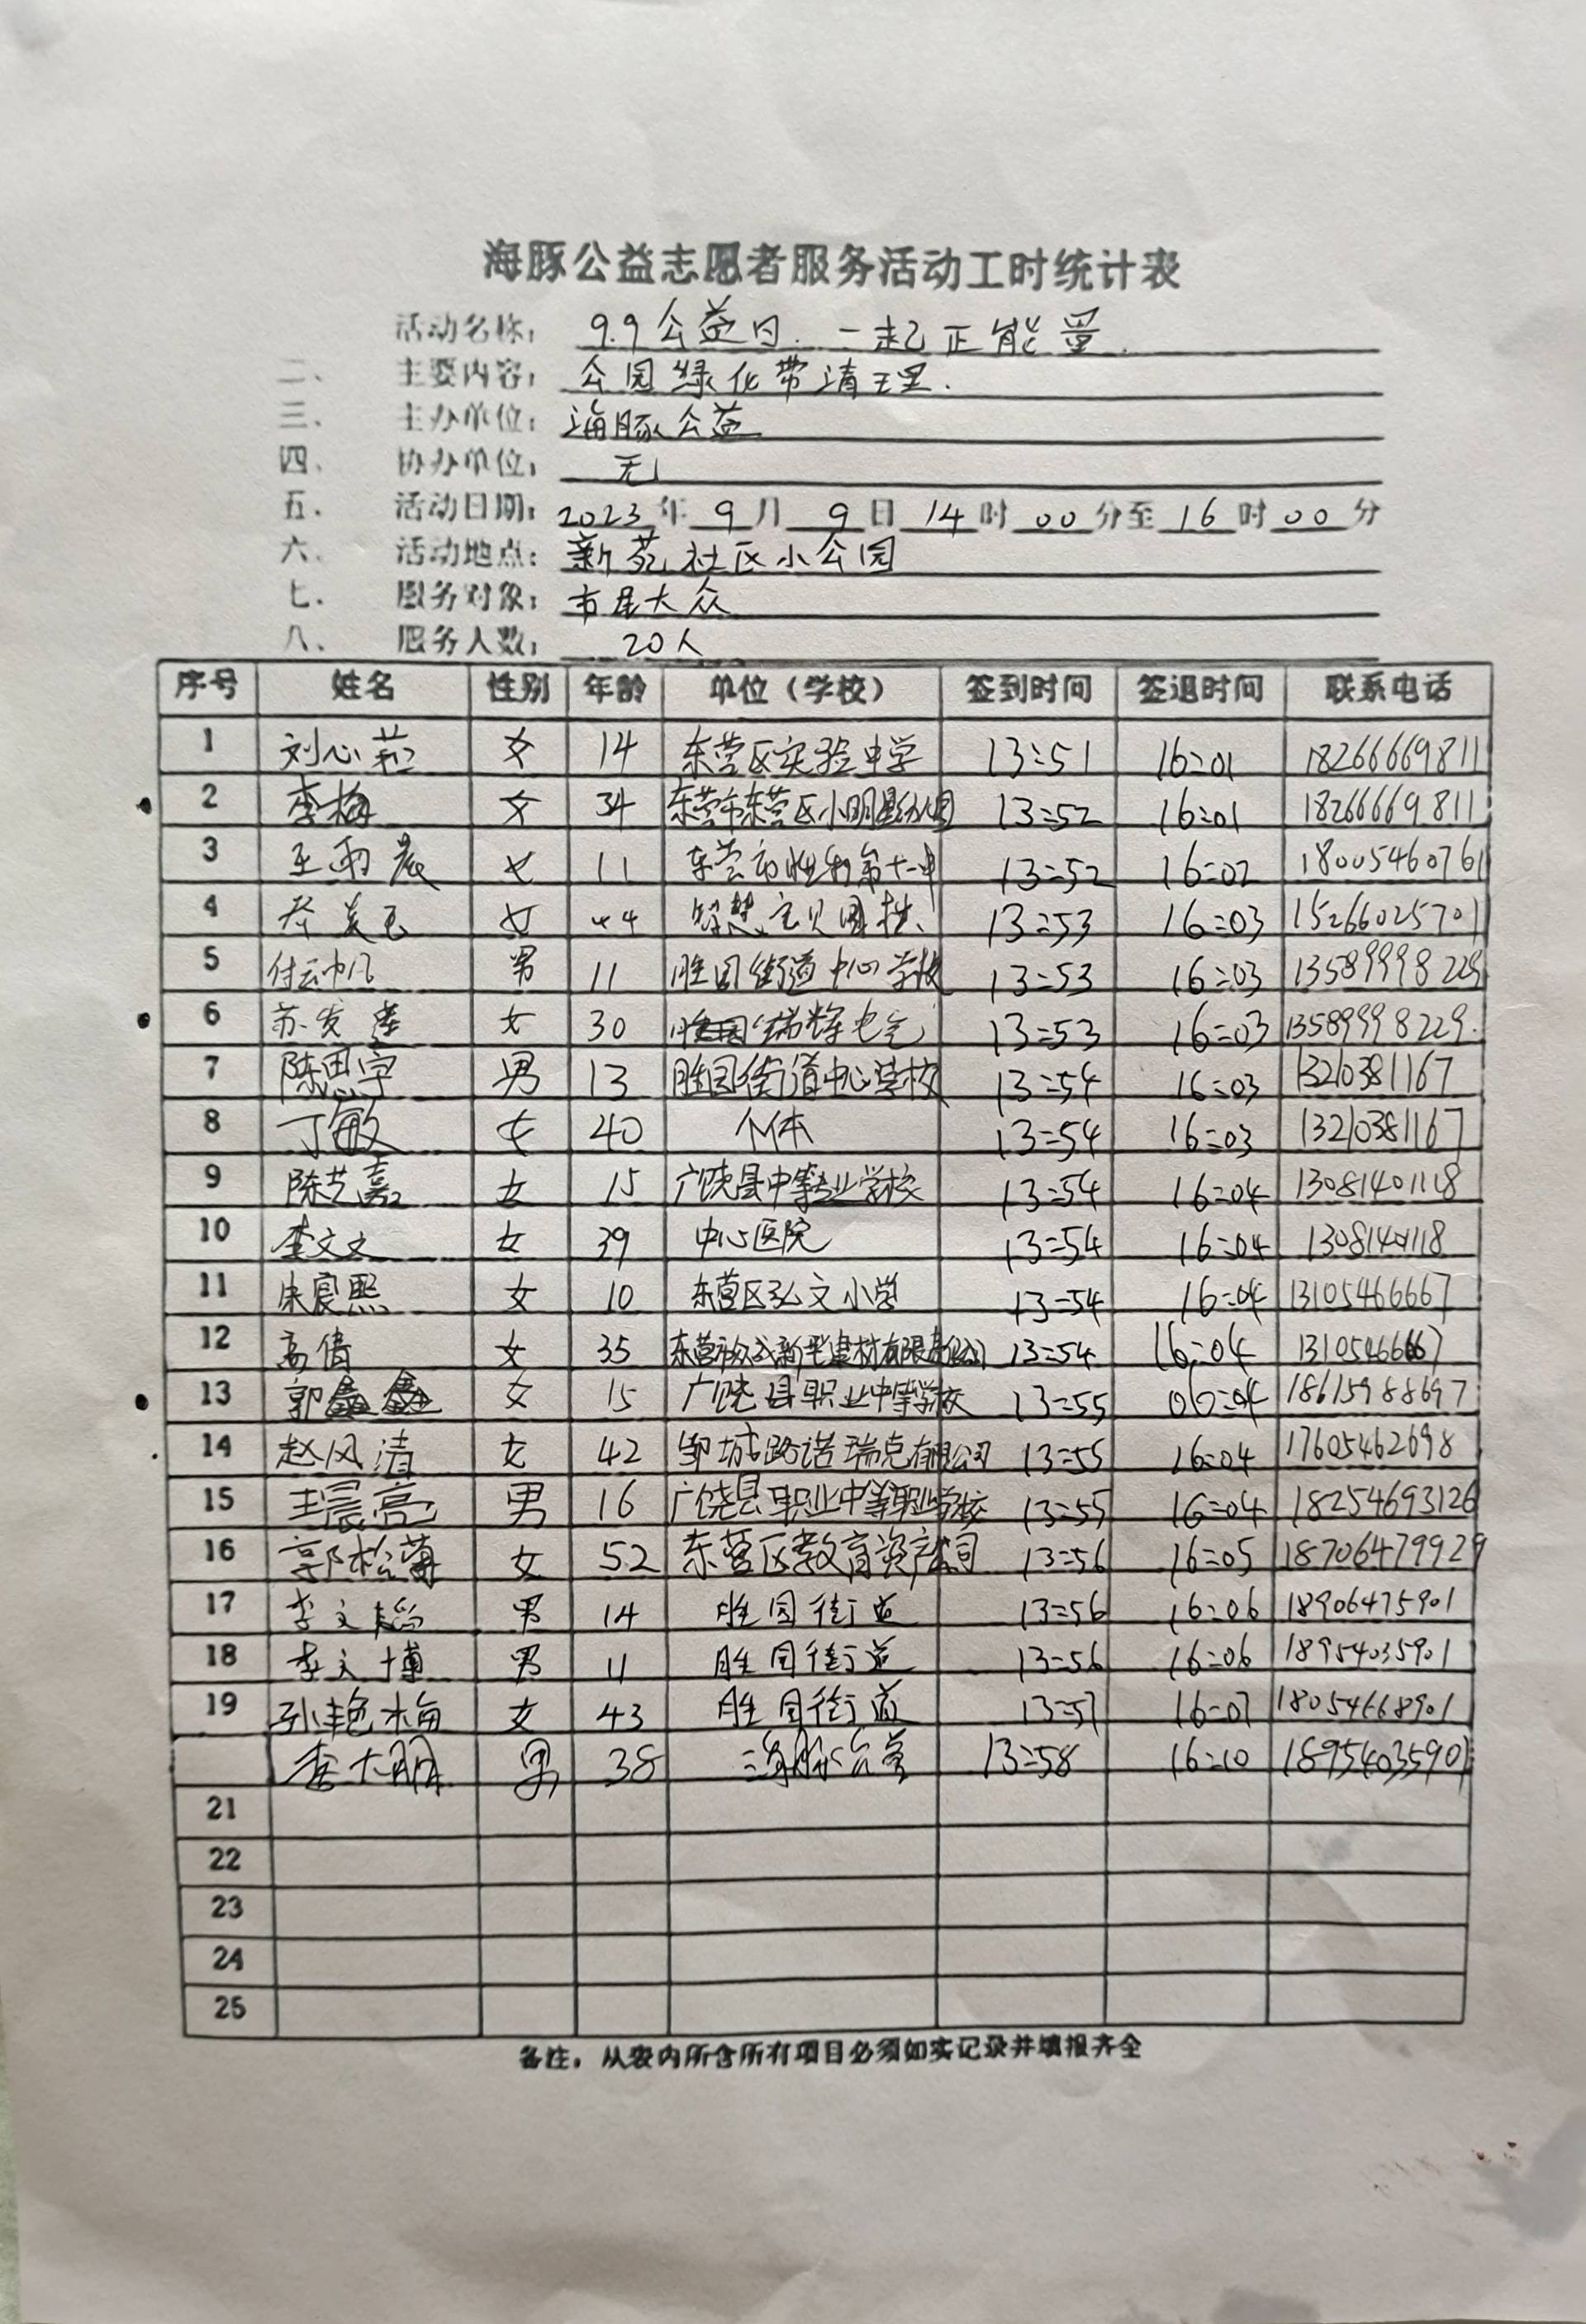 海豚公益志愿者服务活动工时统计表
活动名称： 9.9公益日.一起正能量.
二、 主要内容： 公园绿化带清理.
三、 主办单位： 海豚公益
四、 协办单位： 无
五、 活动日期： 2023年 9月 9日 14时 00分至 16时 00分
六、 活动地点： 新苑社区小公园
七、 服务对象： 市民大众
八、 服务人数： 20人
序号 姓名 性别 年龄 单位（学校） 签到时间 签退时间 联系电话
1 刘心 女 14 东营区实验中学 13:51 16:01 18266669811
2 李梅 女 34 东营市东营区小明星幼儿园 13:52 16:01 18266669811
3 王雨宸 女 11 东营市胜利第十一中 13:52 16:02 18005460761
4 女 44 智慧宝贝 13:53 16:03 15266025701
5 付云帆 男 11 胜园街道中心学校 13:53 16:03 13589998229
6 苏发莲 女 30 瑞辉电气 13:53 16:03 13589998229.
7 陈思宇 男 13 胜园街道中心学校 13:54 16:03 13210381167
8 丁敏 女 40 个体 13:54 16:03 13210381167
9 陈艺嘉 女 15 广饶县中等专业学校 13:54 16:04 13081401118
10 李文文 女 39 中心医院 13:54 16:04 13081401118
11 朱宸熙 女 10 东营区弘文小学 13:54 16:04 13105466667
12 高倩 女 35 东营市众成新型建材有限责任公司 13:54 16:04 13105466667
13 郭鑫鑫 女 15 广饶县职业中等学校 13:55 06:04 18615988697
14 赵风清 女 42 邹城路诺瑞克有限公司 13:55 16:04 17605462698
15 王晨亮 男 16 广饶县职业中等职业学校 13:55 16:04 18254693126
16 郭松菊 女 52 东营区教育资产公司 13:56 16:05 18706479929
17 李文韬 男 14 胜园街道 13:56 16:06 18906475901
18 李文博 男 11 胜园街道 13:56 16:06 18954035901
19 孙艳梅 女 43 胜园街道 13:57 16:07 18054668901
李大朋 男 38 海豚公益 13:58 16:10 18954035901
21
22
23
24
25
备注：从表内所含所有项目必须如实记录并填报齐全